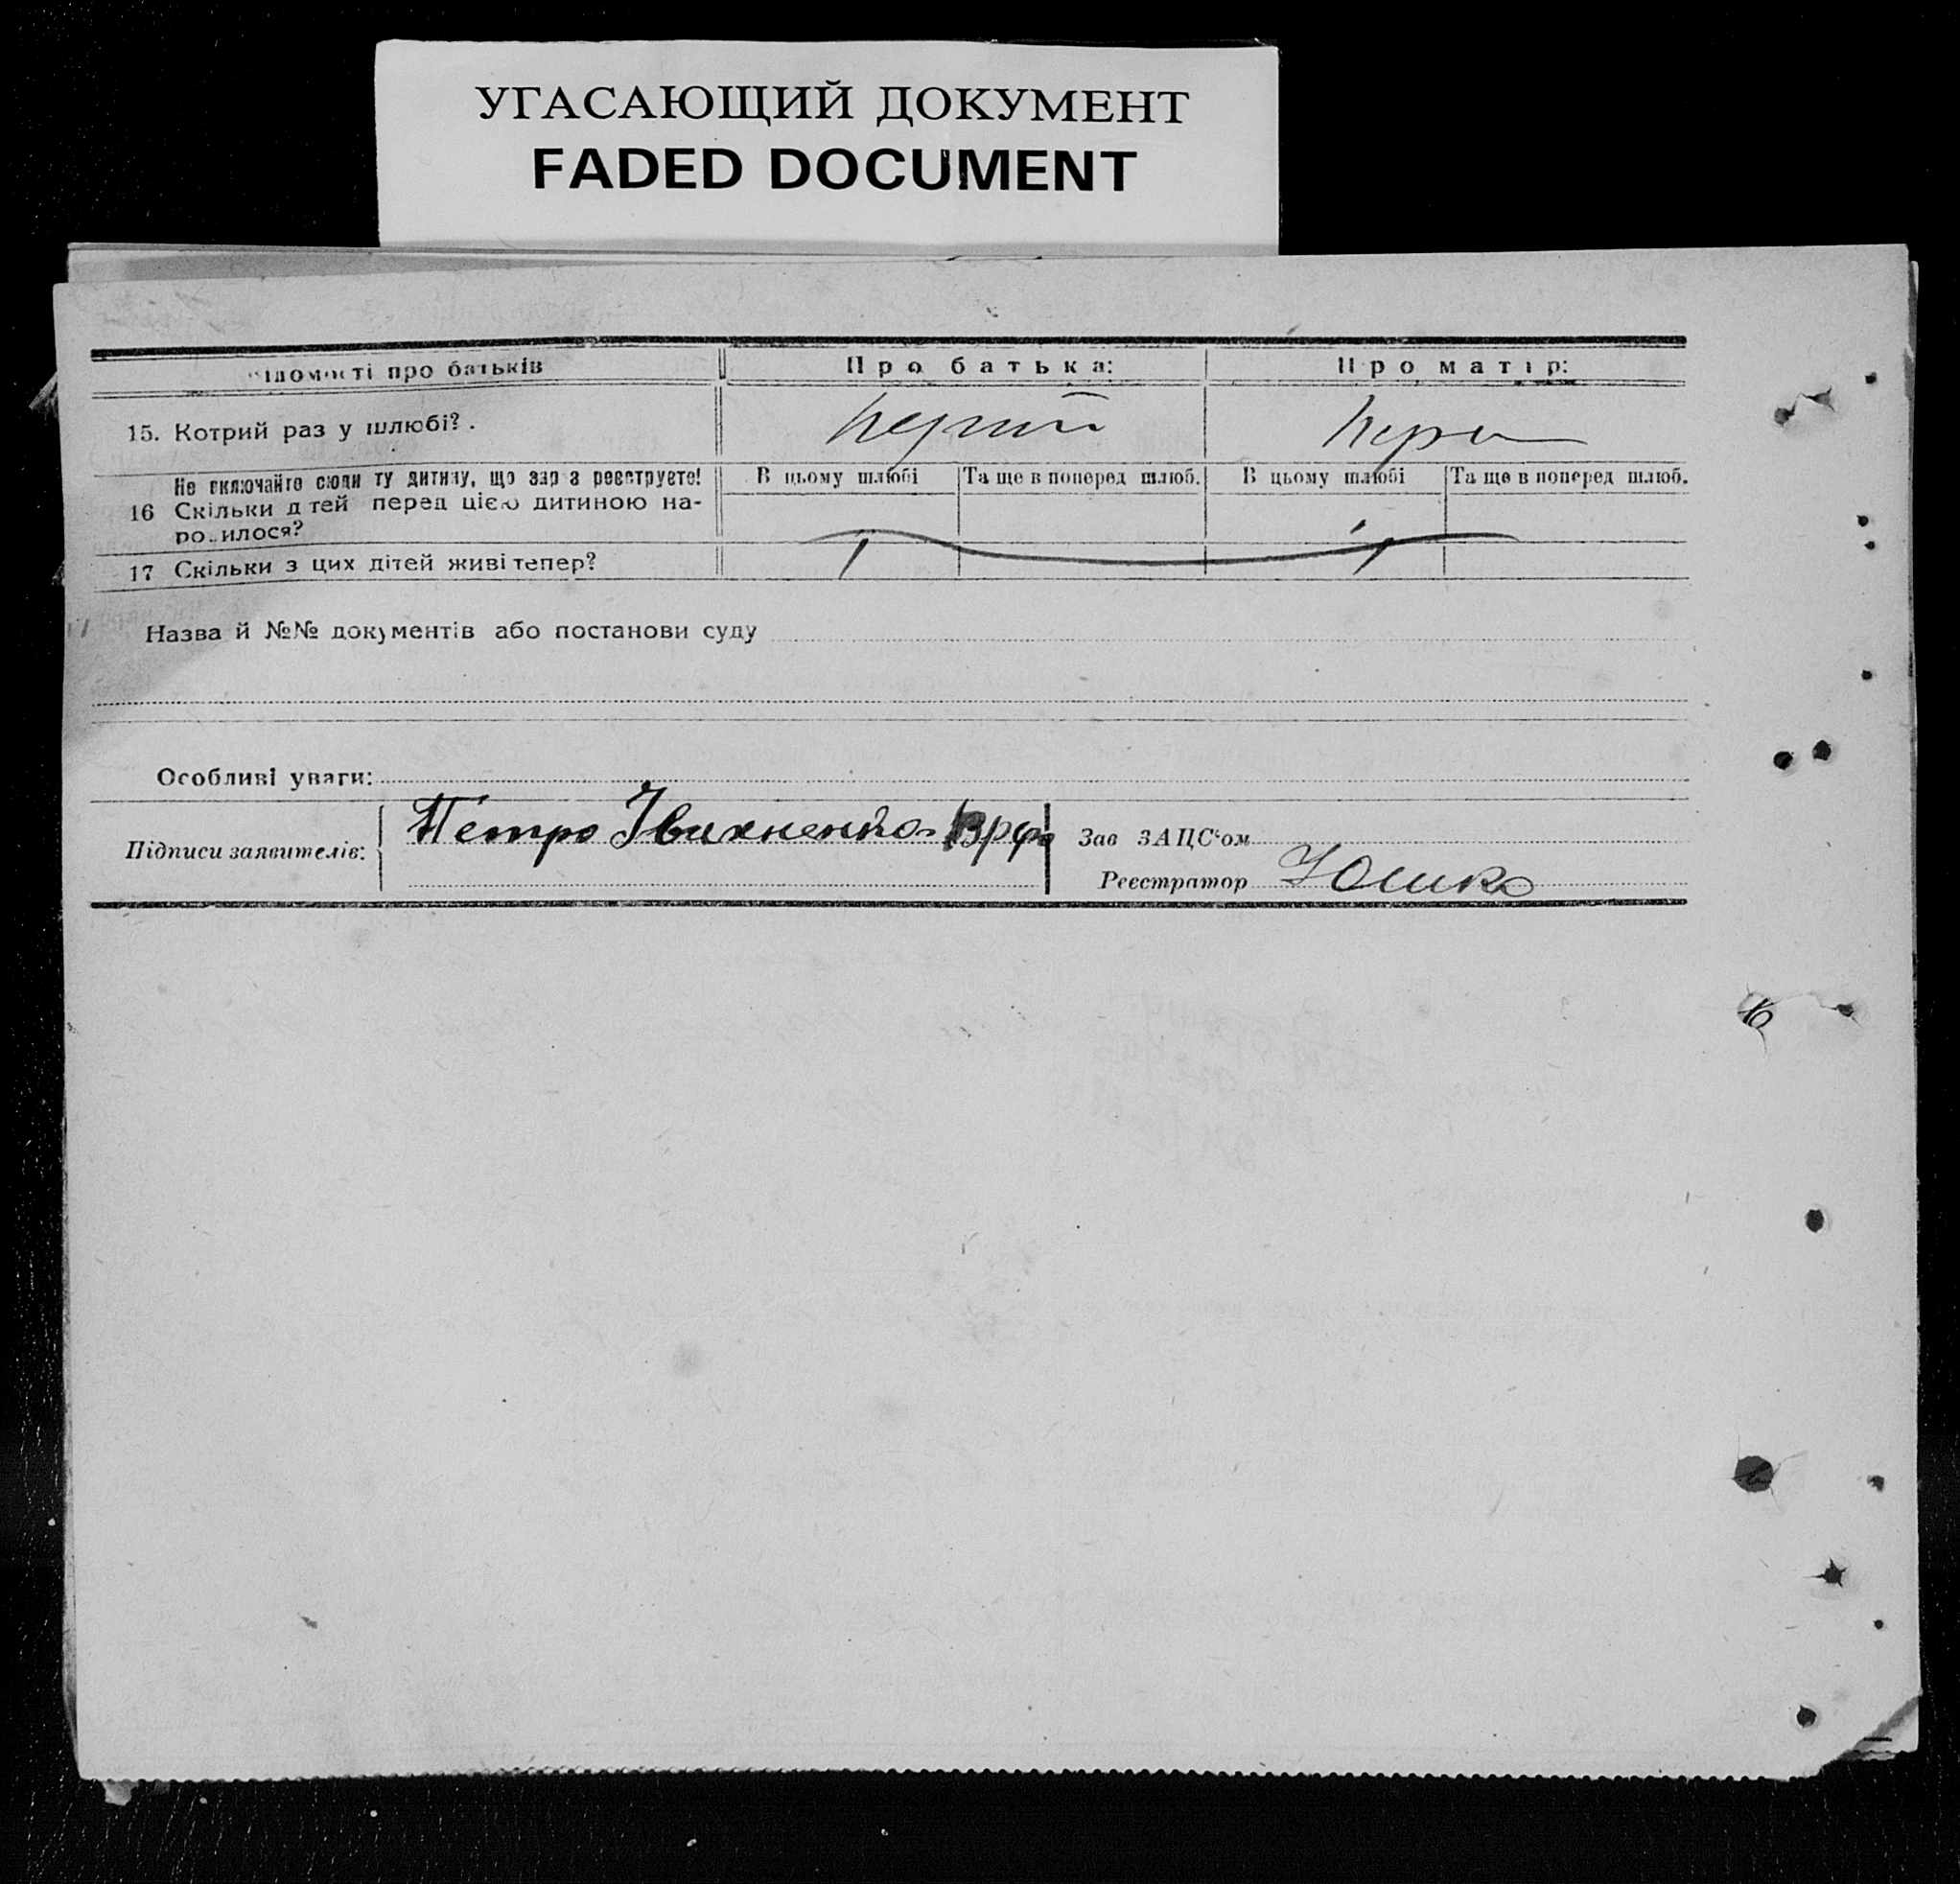 УГАСАЮЩИЙ ДОКУМЕНТ
FADED DOCUMENT
ідомості про батьків Про батька: Про матір:
15. Котрий раз у шлюбі?. перший перш
Не включайте сюди ту дитину, що зар з реєструєте! В цьому шлюбі Та ще в поперед шлюб. В цьому шлюбі Та ще в поперед шлюб.
16 Скільки д тей перед цією дитиною на-
ро.илося?
17 Скільки з цих дітей живі тепер? 1 1
Назва й №№ документів або постанови суду
Особливі уваги:
Підписи заявителів: Петро Івахненко Зав ЗАЦС'ом
Реєстратор Юшко